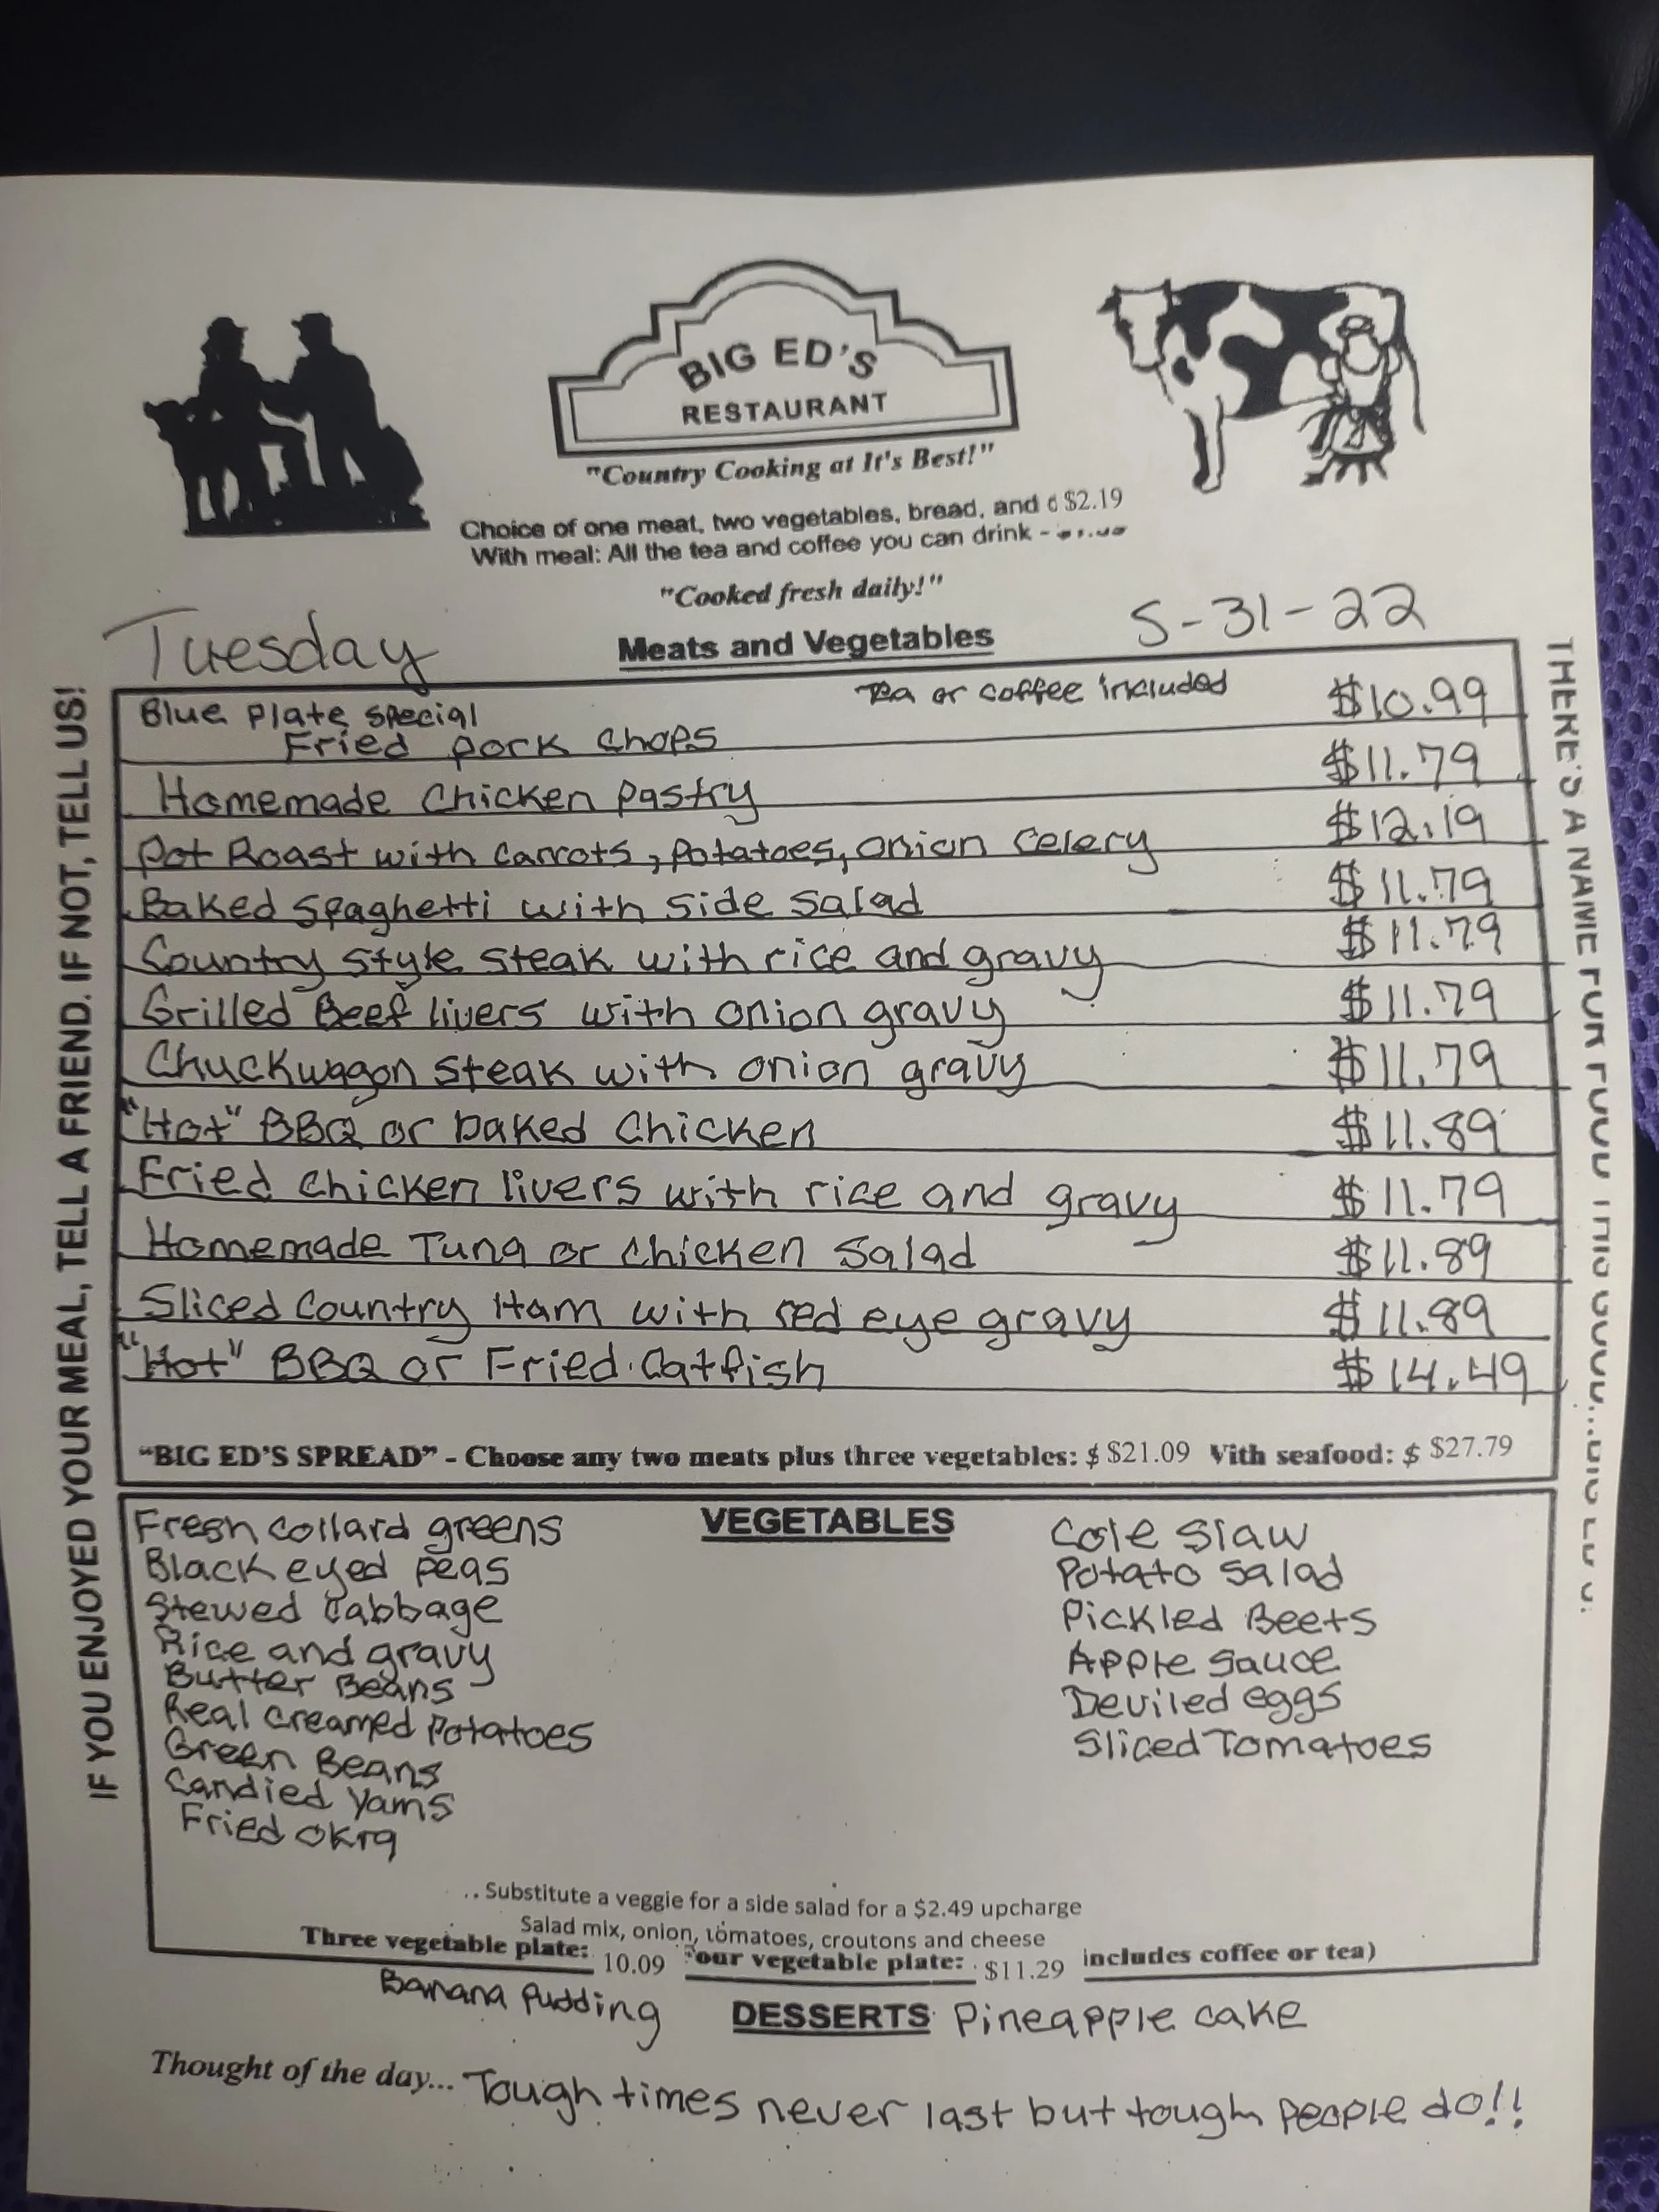 BIG ED'S
RESTAURANT
"Country Cooking at It's Best!"
Choice of one meat, two vegetables, bread, and $2.19
With meal: All the tea and coffee you can drink -
"Cooked fresh daily!"
Tuesday
Meats and Vegetables
5-31-22
Blue Plate Special Tea or coffee included $10.99
Fried pork chops
Homemade Chicken Pastry $11.79
Pot Roast with carrots, potatoes, onion celery $12.19
Baked Spaghetti with side salad $11.79
Country style steak with rice and gravy $11.79
Grilled Beef livers with onion gravy $11.79
Chuckwagon steak with onion gravy $11.79
"Hot" BBQ or baked chicken $11.89
Fried chicken livers with rice and gravy $11.79
Homemade Tuna or chicken salad $11.89
Sliced Country Ham with red eye gravy $11.89
"Hot" BBQ or Fried Catfish $14.49
"BIG ED'S SPREAD" - Choose any two meats plus three vegetables: $ $21.09 Vith seafood: $ $27.79
VEGETABLES
Fresh collard greens
Black eyed peas
Stewed Cabbage
Rice and gravy
Butter Beans
Real creamed Potatoes
Green Beans
Candied Yams
Fried okra
Cole Slaw
Potato salad
Pickled Beets
Apple sauce
Deviled eggs
Sliced Tomatoes
..Substitute a veggie for a side salad for a $2.49 upcharge
Salad mix, onion, tomatoes, croutons and cheese
Three vegetable plate: 10.09 Four vegetable plate: $11.29 includes coffee or tea)
Banana Pudding
DESSERTS Pineapple cake
Thought of the day... Tough times never last but tough people do!!
IF YOU ENJOYED YOUR MEAL, TELL A FRIEND. IF NOT, TELL US!
THERE'S A NAME FOR FOOD THIS GOOD...BIG ED'S!